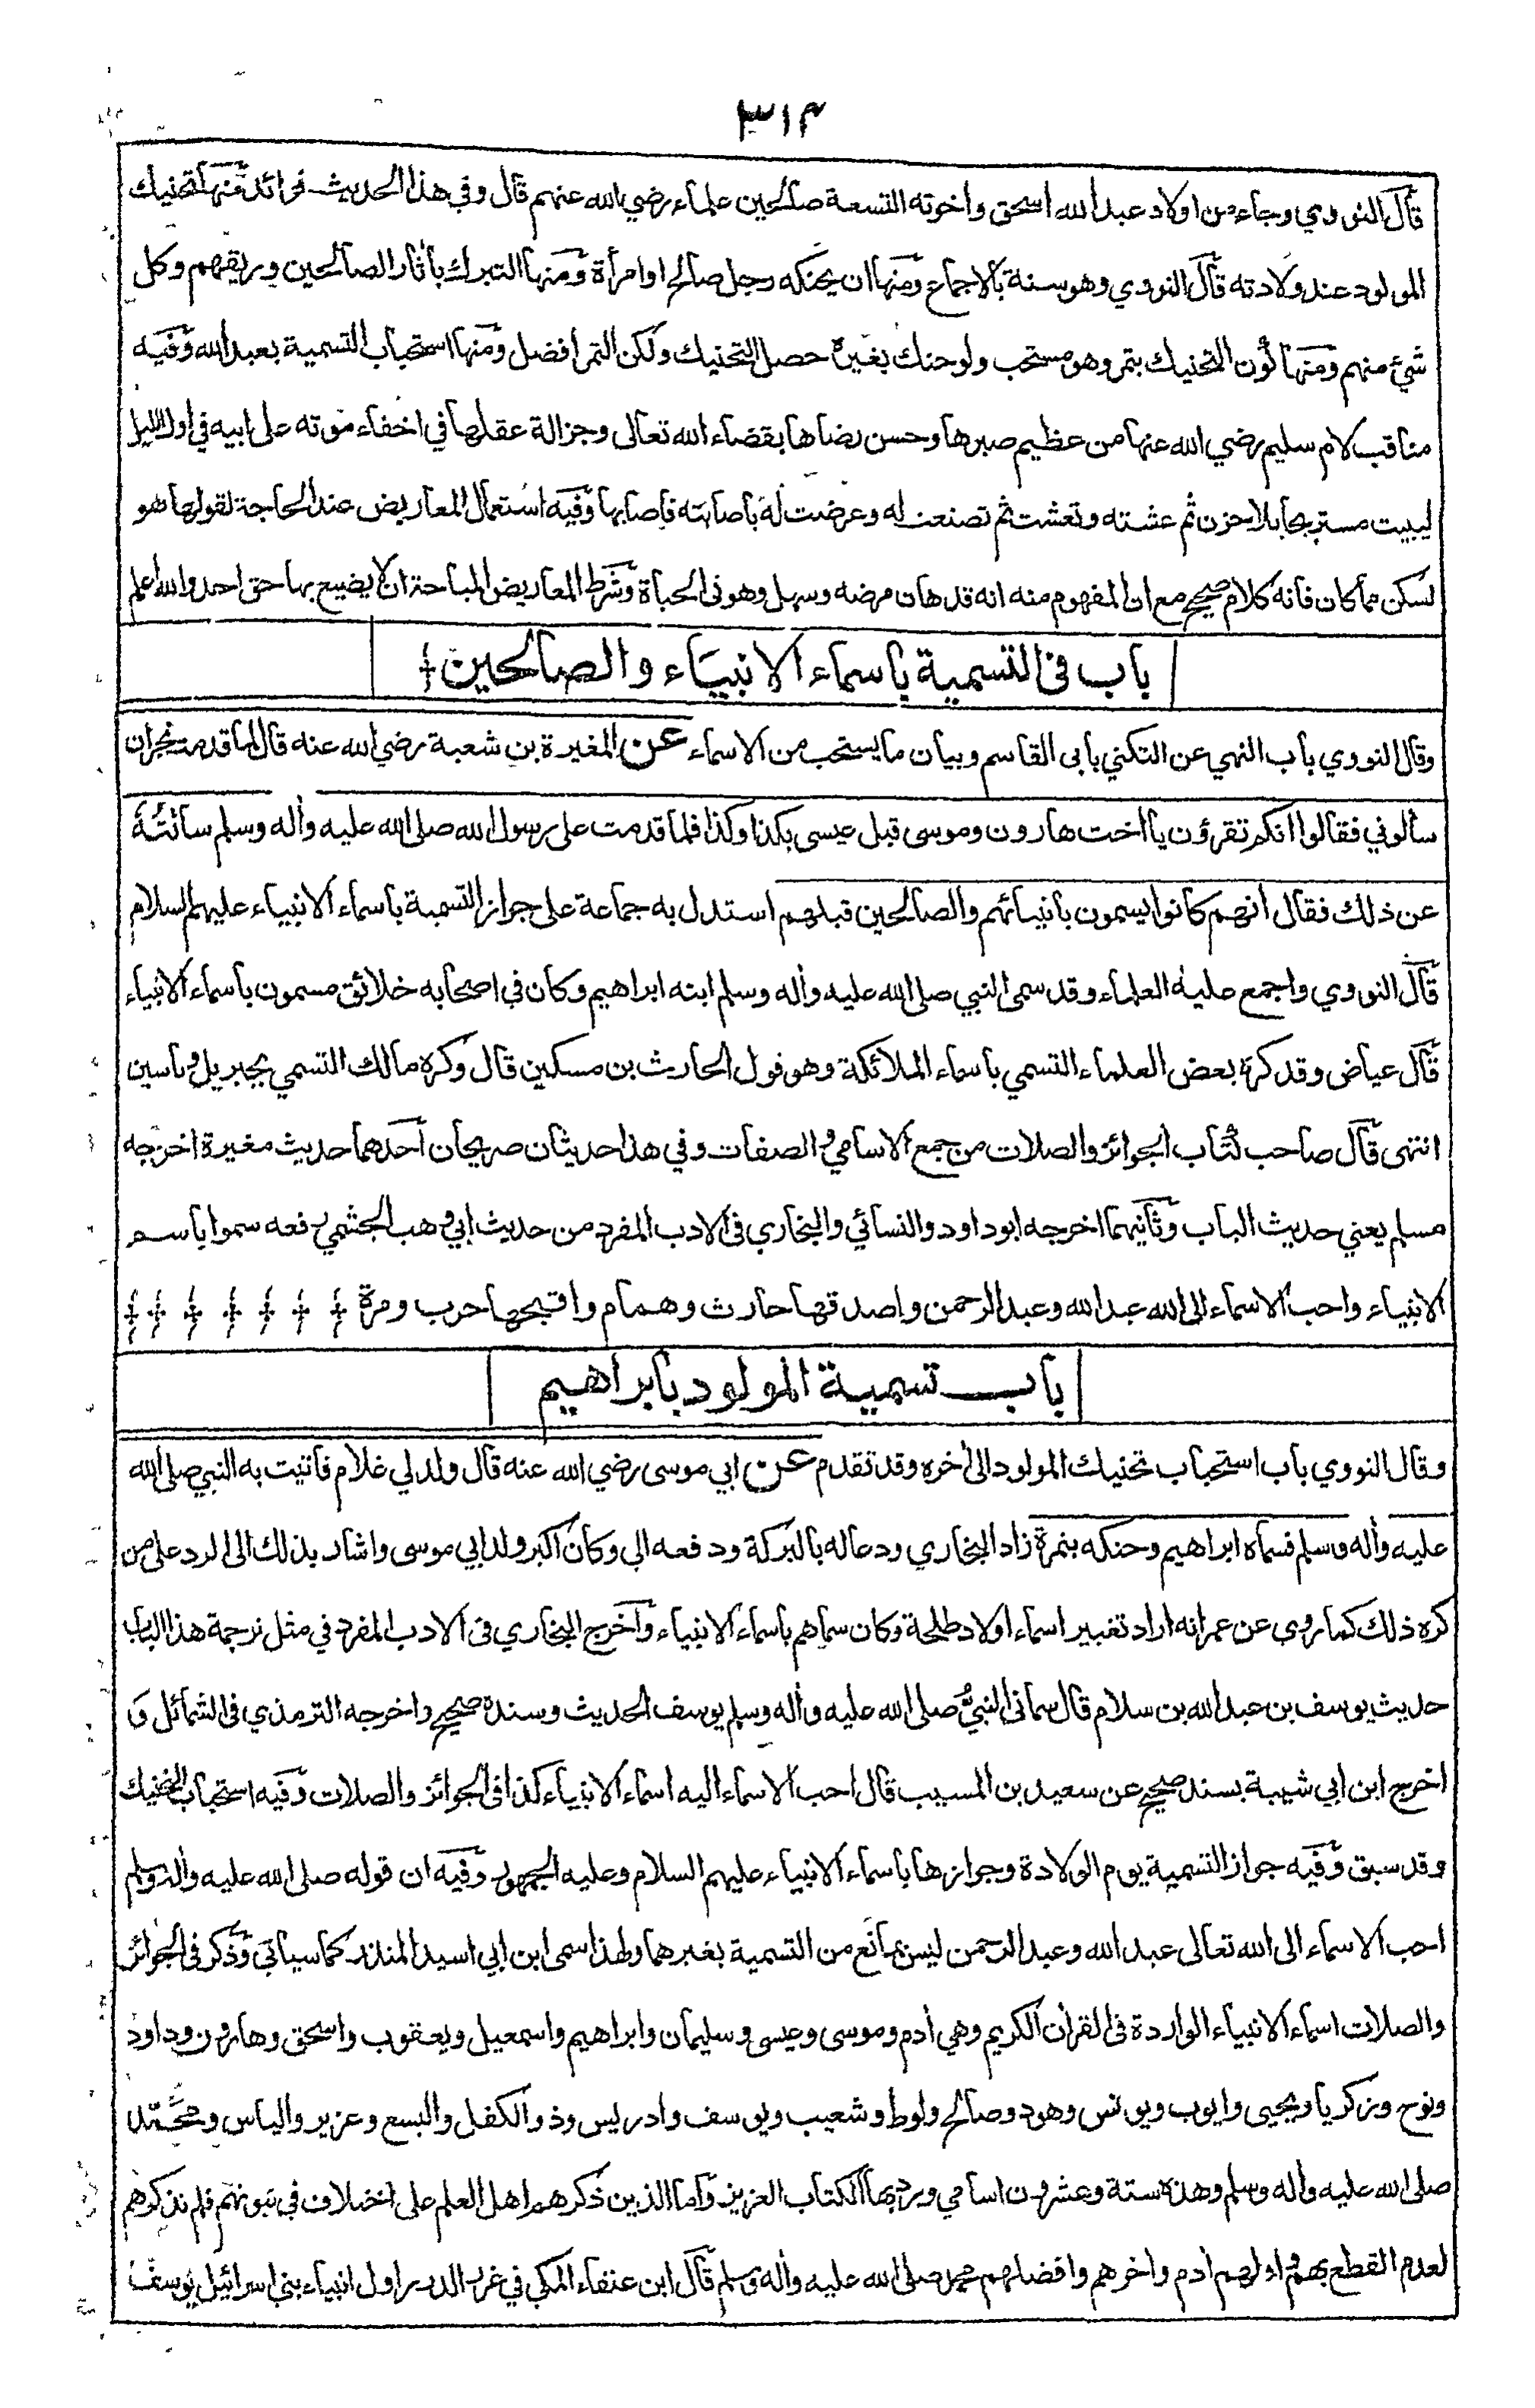 ٣١٤
قال النووي وجاء من اولاد عبد الله اسحق واخوته التسعة صالحين علماء رضي الله عنهم قال وفي هذا الحديث فوائد منها تحنيك
المولود عند ولادته قال النووي وهو سنة بالاجماع ومنها ان يحنكه رجل صالح او امرأة ومنها التبرك باثار الصالحين وريقهم وكل
شيء منهم ومنها كون التحنيك بتمر وهو مستحب ولو حنك بغيره حصل التحنيك ولكن التمر افضل ومنها استحباب التسمية بعبد الله وفيه
مناقب لام سليم رضي الله عنها من عظيم صبرها وحسن رضاها بقضاء الله تعالى وجزالة عقلها في اخفاء موته على ابيه في اول الليل
ليبيت مستريحا بلا حزن ثم عشته وتعشت ثم تصنعت له وعرضت له باصابته فاصابها وفيه استعمال المعاريض عند الحاجة لقولها هو
اسكن مما كان فانه كلام صحيح مع ان المفهوم منه انه قد هان مرضه وسهل وهو في الحياة وشرط المعاريض المباحة ان لا يضيع بها حق احد والله اعلم
باب في التسمية باسماء الانبياء والصالحين
وقال النووي باب النهي عن التكني بابي القاسم وبيان ما يستحب من الاسماء عن المغيرة بن شعبة رضي الله عنه قال لما قدمت نجران
سألوني فقالوا انكم تقرؤن يا اخت هارون وموسى قبل عيسى بكذا وكذا فلما قدمت على رسول الله صلى الله عليه وأله وسلم سألته
عن ذلك فقال انهم كانوا يسمون بانبيائهم والصالحين قبلهم استدل به جماعة على جواز التسمية باسماء الانبياء عليهم السلام
قال النووي واجمع عليه العلماء وقد سمى النبي صلى الله عليه وأله وسلم ابنه ابراهيم وكان في اصحابه خلائق مسمون باسماء الانبياء
قال عياض وقد كره بعض العلماء التسمي باسماء الملائكة وهو قول الحارث بن مسكين قال وكره مالك التسمي بجبريل وياسين
انتهى قال صاحب كتاب الجوائز والصلات من جمع الاسامي والصفات وفي هذا حديثان صريحان احدهما حديث مغيرة اخرجه
مسلم يعني حديث الباب وثانيهما اخرجه ابو داود والنسائي والبخاري في الادب المفرد من حديث ابي وهب الجشمي رفعه سموا باسم
الانبياء واحب الاسماء الى الله عبد الله وعبد الرحمن واصدقها حارث وهمام واقبحها حرب ومرة
باب تسمية المولود بابراهيم
وقال النووي باب استحباب تحنيك المولود الى أخره وقد تقدم عن ابي موسى رضي الله عنه قال ولد لي غلام فاتيت به النبي صلى الله
عليه وأله وسلم فسماه ابراهيم وحنكه بتمرة زاد البخاري ودعا له بالبركة ودفعه الي وكان اكبر ولد ابي موسى واشار بذلك الى الرد على من
كره ذلك كما روى عن عمر انه اراد تغيير اسماء اولاد طلحة وكان سماهم باسماء الانبياء وأخرج البخاري في الادب المفرد في مثل ترجمة هذا الباب
حديث يوسف بن عبد الله بن سلام قال سماني النبي صلى الله عليه وأله وسلم يوسف الحديث وسنده صحيح واخرجه الترمذي في الشمائل و
اخرج ابن ابي شيبة بسند صحيح عن سعيد بن المسيب قال احب الاسماء اليه اسماء الانبياء كذا في الجوائز والصلات وفيه استحباب التحنيك
وقد سبق وفيه جواز التسمية يوم الولادة وجوازها باسماء الانبياء عليهم السلام وعليه الجمهور وفيه ان قوله صلى الله عليه وأله وسلم
احب الاسماء الى الله تعالى عبد الله وعبد الرحمن ليس بمانع من التسمية بغيرهما ولهذا سمى ابن ابي اسيد المنذر كما سيأتي وذكر في الجوائز
والصلات اسماء الانبياء الواردة في القرأن الكريم وهي أدم وموسى وعيسى وسليمان وابراهيم واسمعيل ويعقوب واسحق وهارون وداود
ونوح وزكريا ويحيى وايوب ويونس وهود وصالح ولوط وشعيب ويوسف وادريس وذو الكفل واليسع وعزير والياس ومحمد
صلى الله عليه وأله وسلم وهذه ستة وعشرون اسامي ورد بها الكتاب العزيز وأما الذين ذكرهم اهل العلم على اختلاف في نبوتهم فلم نذكرهم
لعدم القطع بهم واولهم أدم وأخرهم وافضلهم محمد صلى الله عليه وأله وسلم قال ابن عنقاء المكي في غرر الدرر اول انبياء بني اسرائيل يوسف